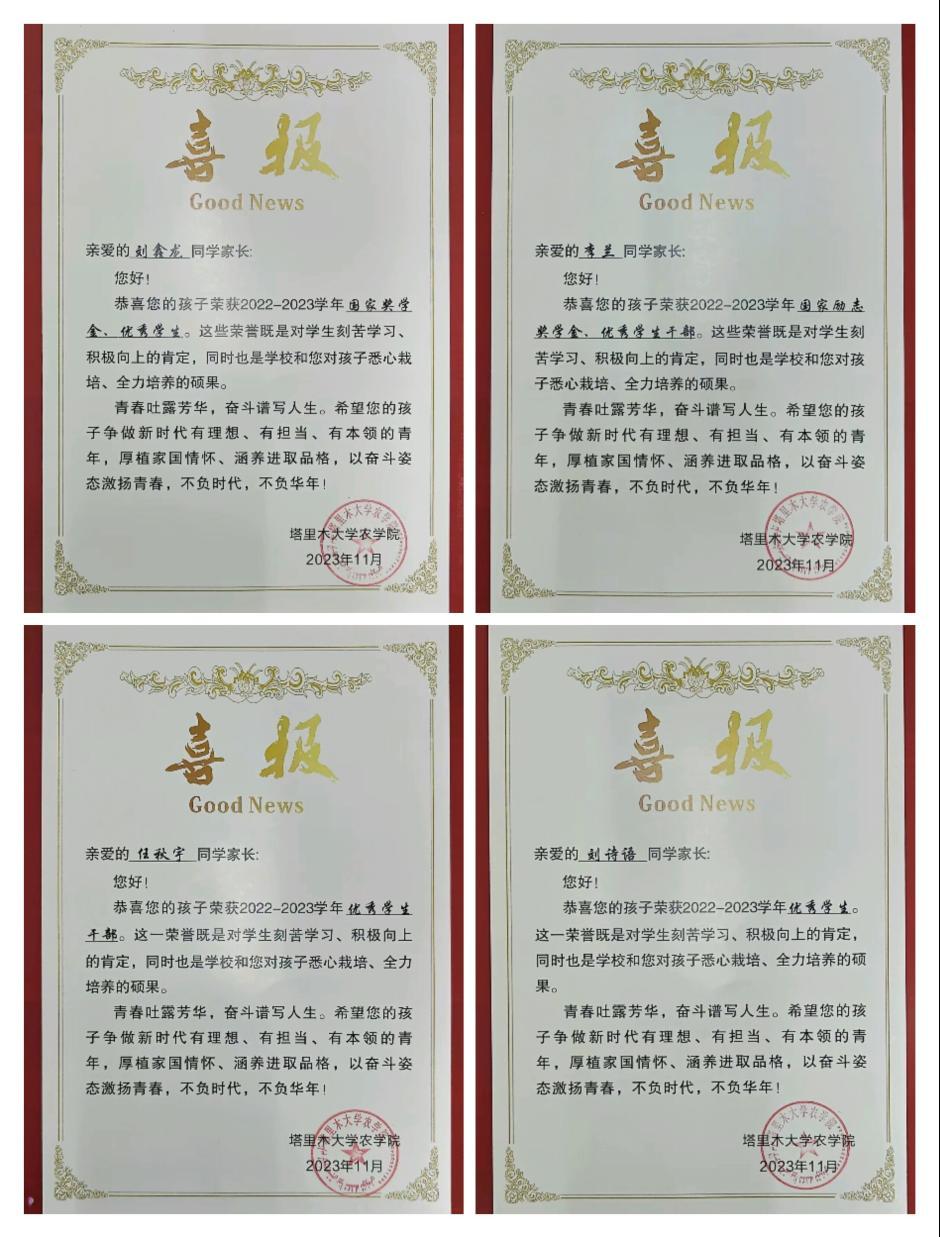 喜报
Good News
亲爱的 刘鑫龙 同学家长:
您好!
恭喜您的孩子荣获2022-2023学年国家奖学
金、优秀学生。这些荣誉既是对学生刻苦学习、
积极向上的肯定，同时也是学校和您对孩子悉心栽
培、全力培养的硕果。
青春吐露芳华，奋斗谱写人生。希望您的孩
子争做新时代有理想、有担当、有本领的青
年，厚植家国情怀、涵养进取品格，以奋斗姿
态激扬青春，不负时代，不负华年!
塔里木大学农学院
2023年11月
喜报
Good News
亲爱的 李兰 同学家长:
您好!
恭喜您的孩子荣获2022-2023学年国家励志
奖学金、优秀学生干部。这些荣誉既是对学生刻
苦学习、积极向上的肯定，同时也是学校和您对孩
子悉心栽培、全力培养的硕果。
青春吐露芳华，奋斗谱写人生。希望您的孩
子争做新时代有理想、有担当、有本领的青
年，厚植家国情怀、涵养进取品格，以奋斗姿
态激扬青春，不负时代，不负华年!
塔里木大学农学院
2023年11月
喜报
Good News
亲爱的 任秋宇 同学家长:
您好!
恭喜您的孩子荣获2022-2023学年优秀学生
干部。这一荣誉既是对学生刻苦学习、积极向上
的肯定，同时也是学校和您对孩子悉心栽培、全力
培养的硕果。
青春吐露芳华，奋斗谱写人生。希望您的孩
子争做新时代有理想、有担当、有本领的青
年，厚植家国情怀、涵养进取品格，以奋斗姿
态激扬青春，不负时代，不负华年!
塔里木大学农学院
2023年11月
喜报
Good News
亲爱的 刘诗语 同学家长:
您好!
恭喜您的孩子荣获2022-2023学年优秀学生。
这一荣誉既是对学生刻苦学习、积极向上的肯定，
同时也是学校和您对孩子悉心栽培、全力培养的硕
果。
青春吐露芳华，奋斗谱写人生。希望您的孩
子争做新时代有理想、有担当、有本领的青
年，厚植家国情怀、涵养进取品格，以奋斗姿
态激扬青春，不负时代，不负华年!
塔里木大学农学院
2023年11月